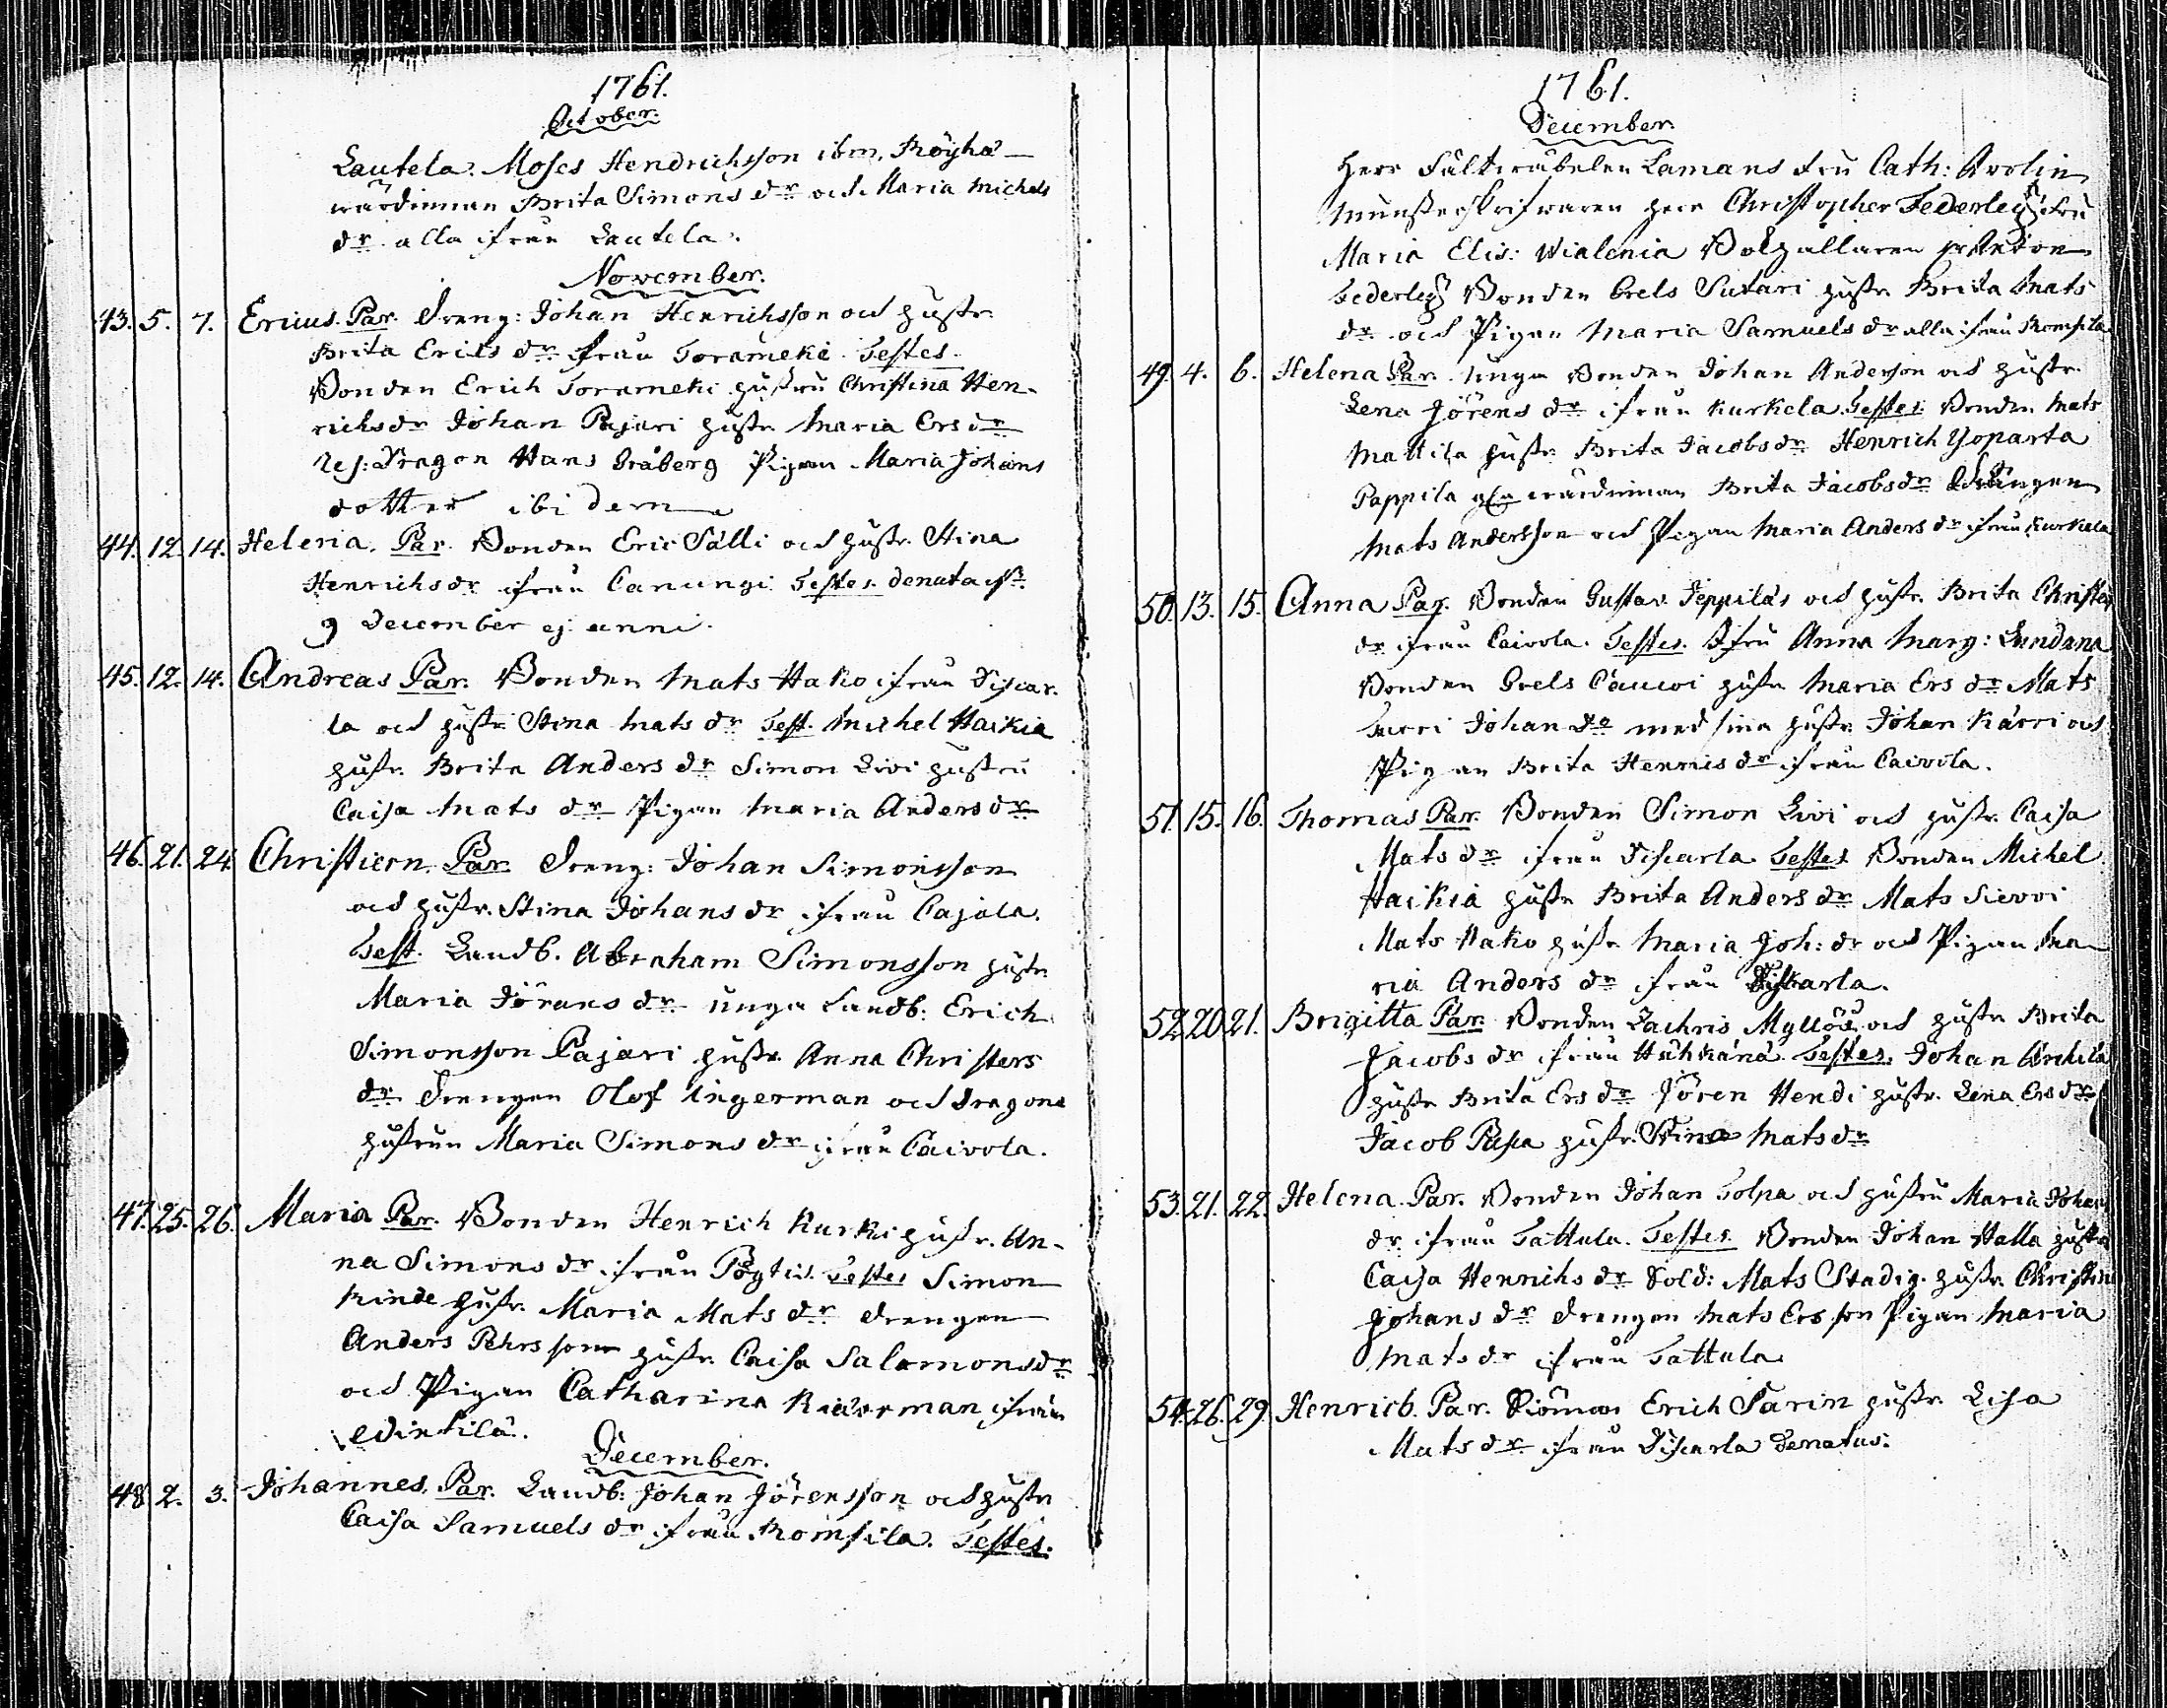 1761.
October.
Lautela. Moses Hendrichsson ibm, Röyhä
wärdinnan Brita Simons dr och Maria Michels
dr alla ifrån Lautela.
November.
43. 5. 7. Ericus. Par. Dreng: Johan Henrichsson och hustr.
Brita Erics dr ifrån Torameki. Testes.
Bonden Erich Torameki hustru Christina Hen-
richsdr Johan Pajari hustr. Maria Ersdr
Res: Dragon Hans Gråberg Pigan Maria Johans
dotter ibidem
44. 12. 14. Helena. Par. Bonden Eric Sälli och hustr. Stina
Henrichsdr ifrån Canungi Testes. denata est
9 December ej. anni.
45. 12. 14. Andreas Par. Bonden Mats Hako ifrån Discar-
la och hustr. Stina Mats dr Test. Michel Haikia
hustr. Brita Anders dr Simon Livi hustru
Caisa Mats dr Pigan Maria Anders dr
46. 21. 24. Christiern. Par. Dreng: Johan Simonsson
och hustr. Stina Johans dr ifrån Cajala.
Test. Landb. Abraham Simonsson hustr.
Maria Jörans dr unga Landb: Erich
Simonsson Pajari hustr. Anna Christers
dr Drengen Olof Ingerman och Dragons
hustrun Maria Simons dr ifrån Caivola.
47. 25. 26. Maria Par. Bonden Henrich Kurki hustr. An-
na Simons dr ifrån Pöytis. Testes Simon
Kinde hustr. Maria Mats dr Drengen
Anders Pehrsson hustr. Caisa Salomonsdr
och Pigan Catharina ifrån
December.
48. 2. 3. Johannes. Par. Landb: Johan Jörensson och hustr
Caisa Samuels dr ifrån Romsila. Testes.
1761.
December.
Herr Fältwäbelen Lamans Fru Cath: Avolin
Munsterskrifwaren Herr Christopher Federley Fru
Maria Elis: Wialenia Bokhållaren hr Anton
Federley Bonden Grels Sutari hustr. Brita Mats
dr och Pigan Maria Samuels dr alla ifrån Romsila
49. 4. 6. Helena Par. Unga Bonden Johan Anderson och hustr.
Lena Jörens dr ifrån Kurkela. Testes Bonden Mats
Mattila hustr. Brita Jacobsdr Henrich Yoparta
Pappila wärdinnan Brita Jacobsdr Drängen
Mats Andersson och Pigan Maria Anders dr ifrån Kurkela
50. 13. 15. Anna Par. Bonden Gustav Jeppilä's och hustr. Brita Christers
dr ifrån Caivola. Testes. Jfru Anna Marg: Lundana
Bonden Grels Caucoi hustr. Maria Ers dr Mats
Surri Johan do med sina hustr. Johan Kärri och
Pigan Brita Henrics dr ifrån Caivola.
51. 15. 16. Thomas Par. Bonden Simon Livi och hustr. Caisa
Mats dr ifrån Discarla Testes Bonden Michel
Haikia hustr Brita Anders dr Mats Sievoi
Mats Hako hustr. Maria Joh: dr och Pigan Ma
ria Anders dr ifrån Diskarla.
52. 20. 21. Brigitta Par. Bonden Zachris Myllöis och hustr Brita
Jacobs dr ifrån Huhkana. Testes. Johan Ankila
hustr Brita Ers dr Jören Hendi hustr. Lena Ersdr
Jacob Papa hustr. Stina Matsdr
53. 21. 22. Helena. Par. Bonden Johan Tolpa och hustru Maria Johans
dr ifrån Tattula. Testes. Bonden Johan Halla hustr
Caisa Henrichs dr Sold: Mats Stadig. hustr. Christina
Johans dr Drengen Mats Ersson Pigan Maria
Mats dr ifrån Tattula
54. 26. 29. Henrich. Par. Erich Sarin hustr. Lisa
Mats dr ifrån Discarla Denatus.